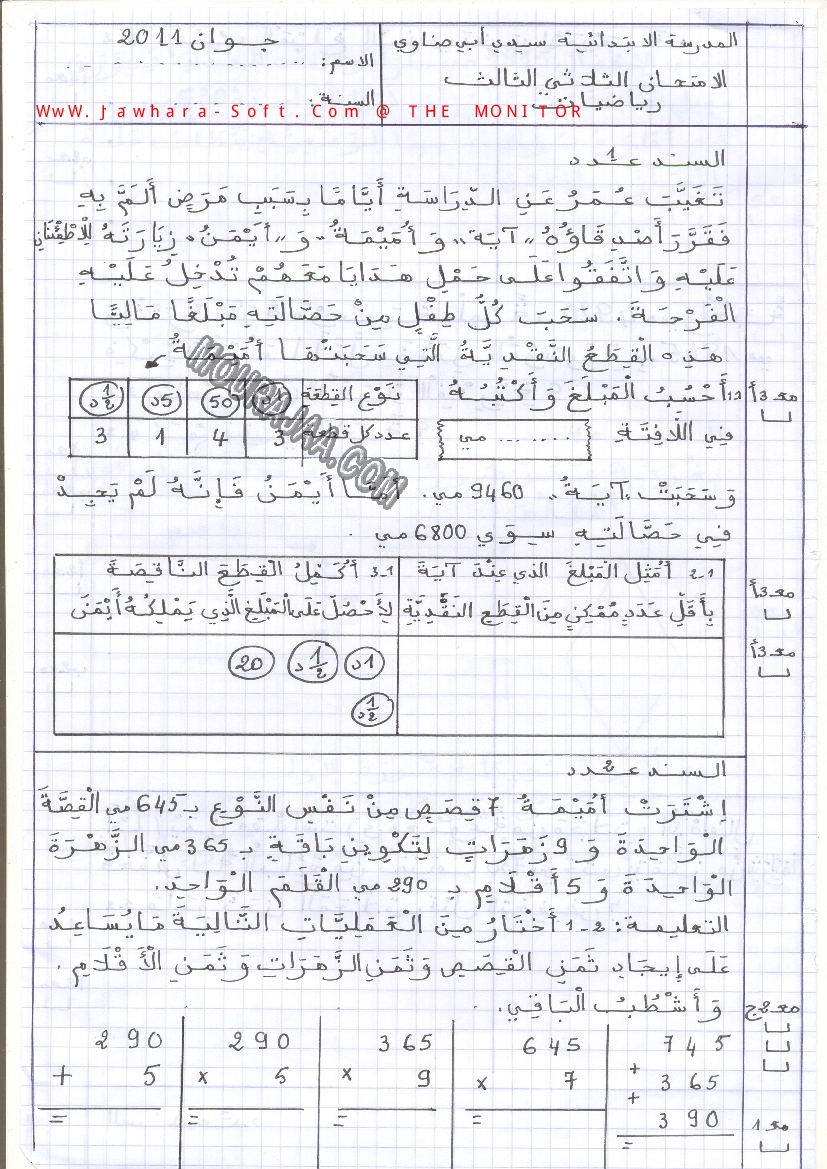 المدرسة الابتدائية سيدي أبي صناوي
جوان 2011
الاسم:
الامتحان الثلاثي الثالث
رياضيات
السنة:
WwW. Jawhara-Soft. Com @ THE MONITOR
السند عـ1ـدد
تَغَيَّبَ عُمَرُ عَنِ الدِّرَاسَةِ أَيَّامًا بِسَبَبِ مَرَضٍ أَلَمَّ بِهِ
فَقَرَّرَ أَصْدِقَاؤُهُ "آيَة" وَ أُمَيْمَةُ" وَ"أَيْمَنُ" زِيَارَتَهُ لِلْاِطْمِئْنَانِ
عَلَيْهِ وَ اتَّفَقُوا عَلَى حَمْلِ هَدَايَا مَعَهُمْ تُدْخِلُ عَلَيْهِ
الْفَرْحَةَ. سَحَبَ كُلُّ طِفْلٍ مِنْ حَصَّالَتِهِ مَبْلَغًا مَالِيًّا
هَذِه الْقِطَعُ النَّقْدِيَّةُ الَّتِي سَحَبَتْهَا أُمَيْمَةُ
مع3أ
1-1 أَحْسُبُ الْمَبْلَغَ وَ أَكْتُبُهُ
نَوْعُ القِطْعَة 1د 50 5د 1/2د
فِي اللَّافِتَةِ
....... مي
عدد كل قطعة 3 4 1 3
MOURAJAA.COM
وَ سَحَبَتْ "آيَةُ" 9460 مي. أَمَّا أَيْمَنُ فَإِنَّهُ لَمْ يَجِدْ
فِي حَصَّالَتِهِ سِوَى 6800 مي.
مع3أ
1-2 أُمَثِّل الْمَبْلَغَ الذي عِنْدَ آيَةَ
بِأَقَلِّ عَدَدٍ مُمْكِنٍ مِنَ الْقِطَعِ النَّقْدِيَّةِ
1-3 أُكَمِّلُ الْقِطَعَ النَّاقِصَةَ
لِأَحْصُلَ عَلَى الْمَبْلَغِ الَّذِي يَمْلِكُهُ أَيْمَنَ
مع3أ
1د 1/2د 20
1/2د
السند عـ2ـدد
اِشْتَرَتْ أُمَيْمَةُ 7 قِصَصٍ مِنْ نَفْسِ النَّوْعِ بـ645 مي الْقِصَّةَ
الْوَاحِدَةَ وَ 9 زَهَرَاتٍ لِتَكْوِينِ بَاقَةٍ بـ 365 مي الزَّهْرَةَ
الْوَاحِدَةَ وَ 5 أَقْلَامٍ بـ 290 مي الْقَلَمَ الْوَاحِدَ.
التعليمة: 2-1 أَخْتَارُ مِنَ الْعَمَلِيَّاتِ التَّالِيَةِ مَا يُسَاعِدُ
عَلَى إِيجَادِ ثَمَنِ الْقِصَصِ وَثَمَنِ الزَّهَرَاتِ وَ ثَمَنِ الْأَقْلَامِ.
وَ أَشْطُبُ الْبَاقِي.
مع2ج
745
+
365
+
390
=
645
× 7
=
365
× 9
=
290
× 5
=
290
+ 5
=
مع1